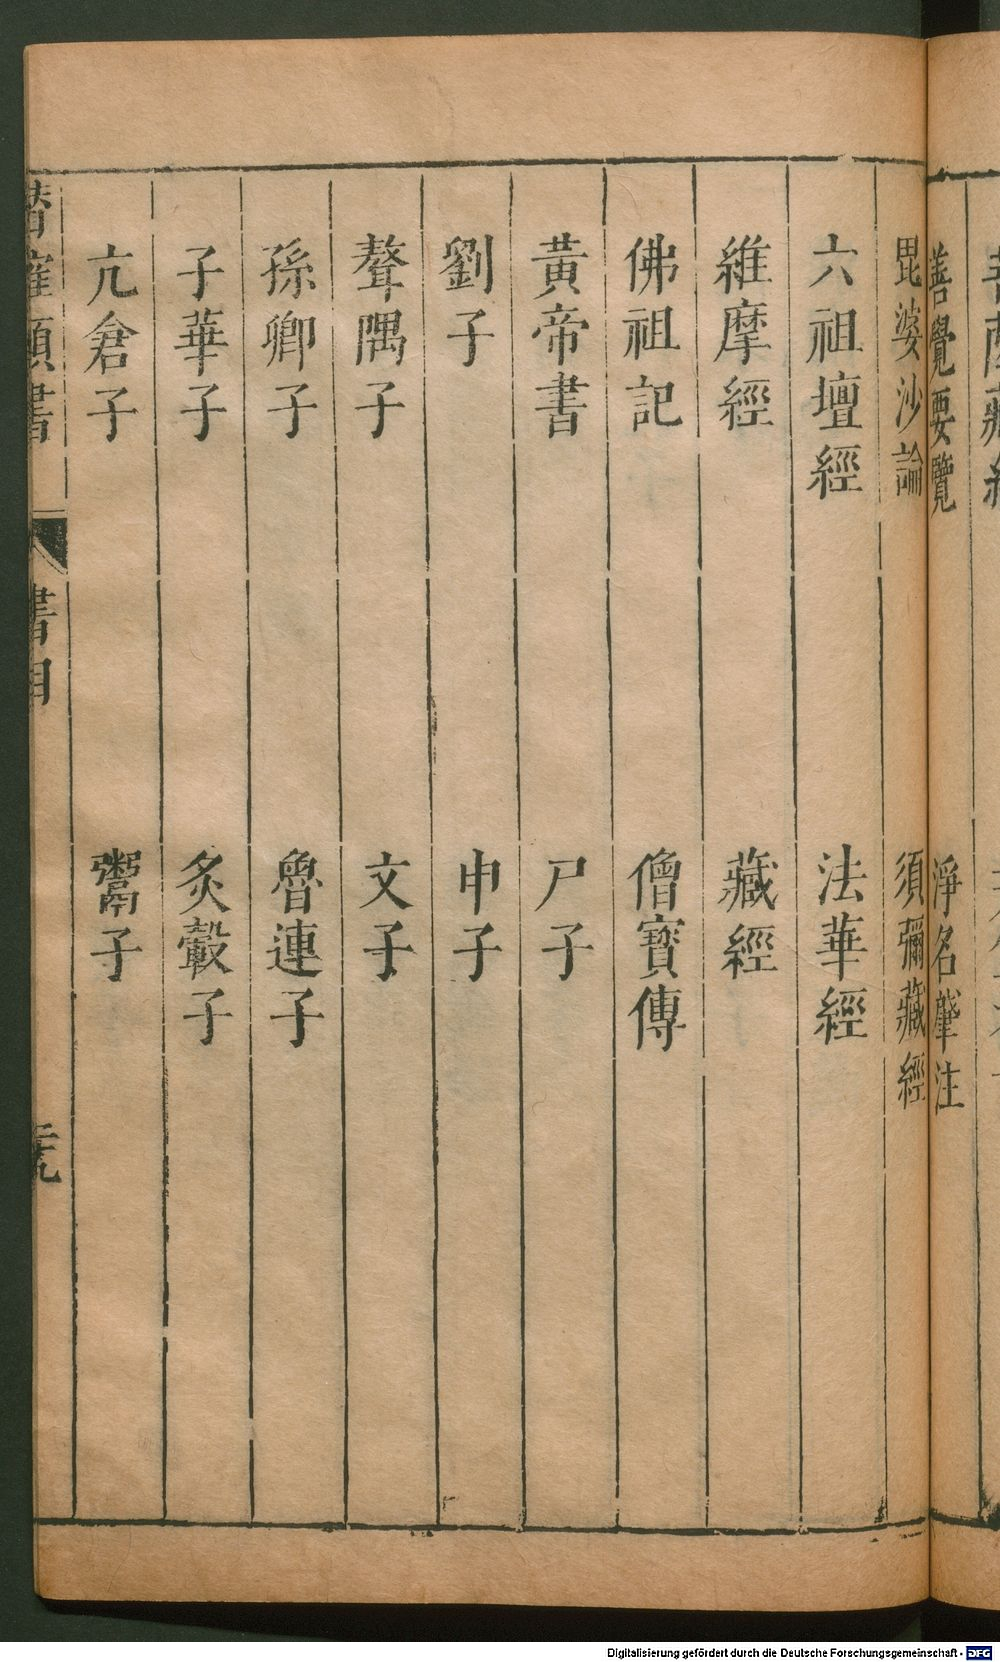 善覺要覽
淨名肇注
毘婆沙論
須彌藏經
六祖壇經
法華經
維摩經
藏經
佛祖記
僧寶傳
黃帝書
尸子
劉子
申子
聱隅子
文子
孫卿子
魯連子
子華子
炙轂子
亢倉子
鬻子
潛確類書
書目
Digitalisierung gefördert durch die Deutsche Forschungsgemeinschaft - DFG